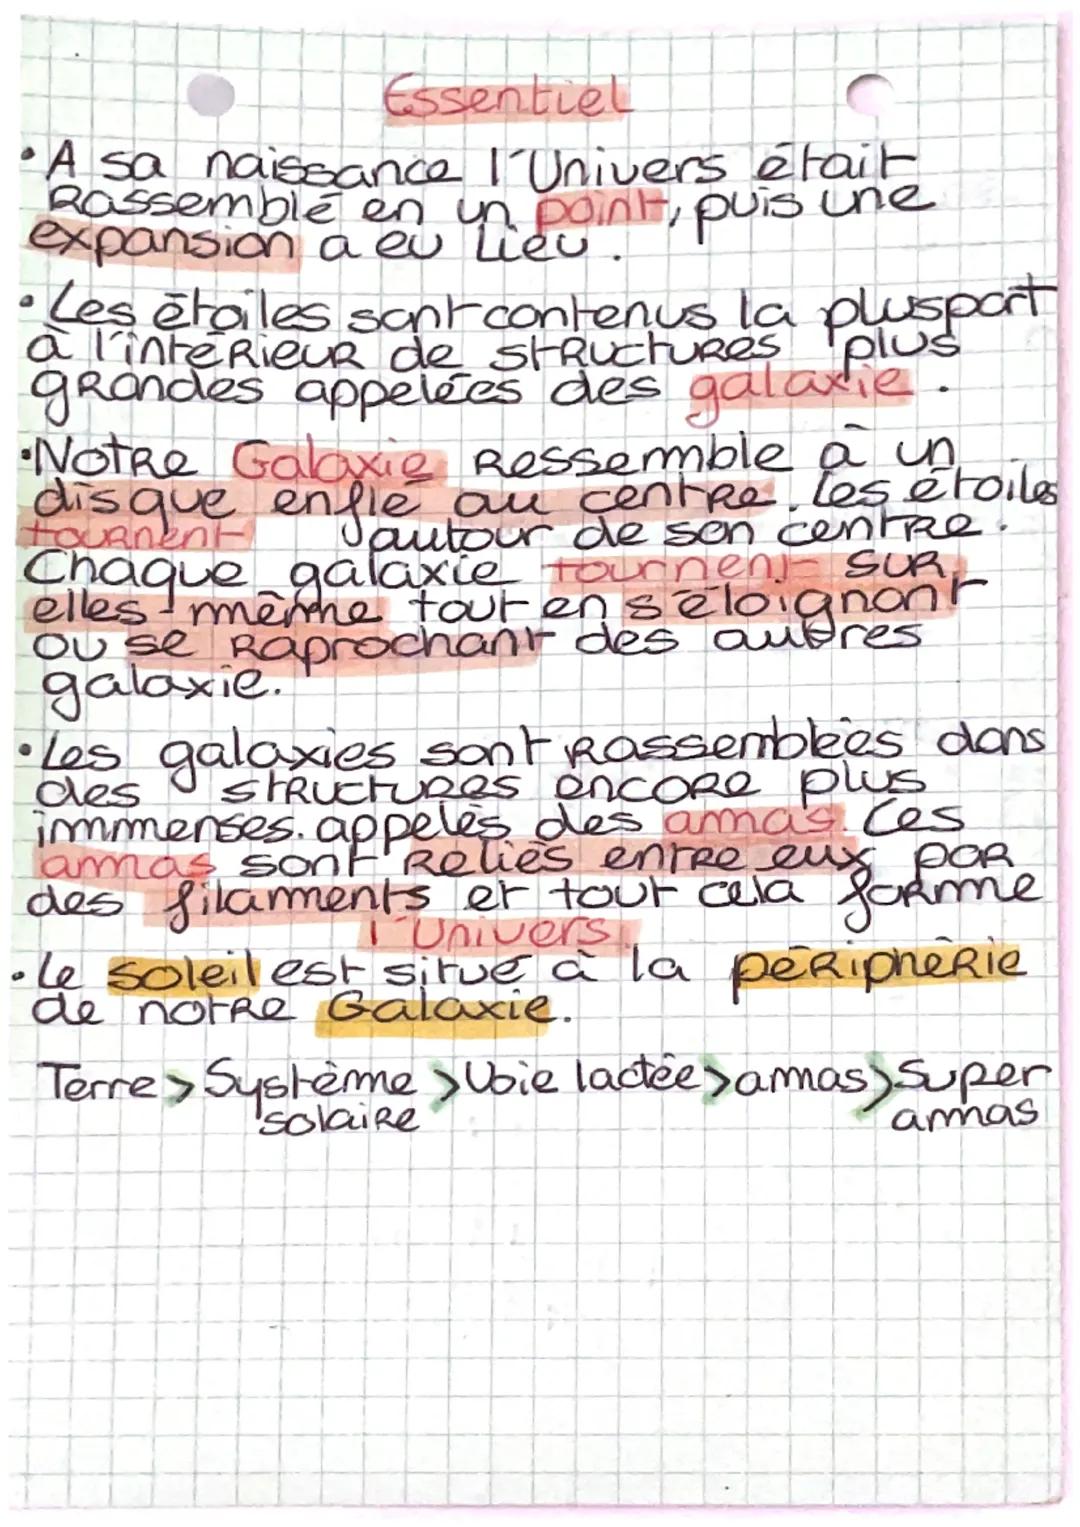 Essentiel
• A sa naissance l'Univers était
Rassemblé en un point, puis une
expansion a eu Lieu.
• Les étoiles sont contenus la pluspart
à l'intéRieuR de stRuctuRes plus
gRandes appelées des galaxie.
• NotRe Galaxie Ressemmble à un
disque enflé au centRe. Les étoiles
touRnent autour de son centRe.
Chaque galaxie tournent suR
elles-mêmme tout en s'éloignant
ou se Raprochant des autres
galaxie.
• Les galaxies sont Rassemblées dans
des stRuctuRes encoRe plus
immmenses. appelés des ammas. Ces
ammas sont Reliés entRe eux paR
des filamments et tout cela foRmme
l'Univers
• Le soleil est situé à la péRiphéRie
de notRe Galaxie.
Terre > Systèmme > Voie lactée > ammas > Super
solaiRe ammas